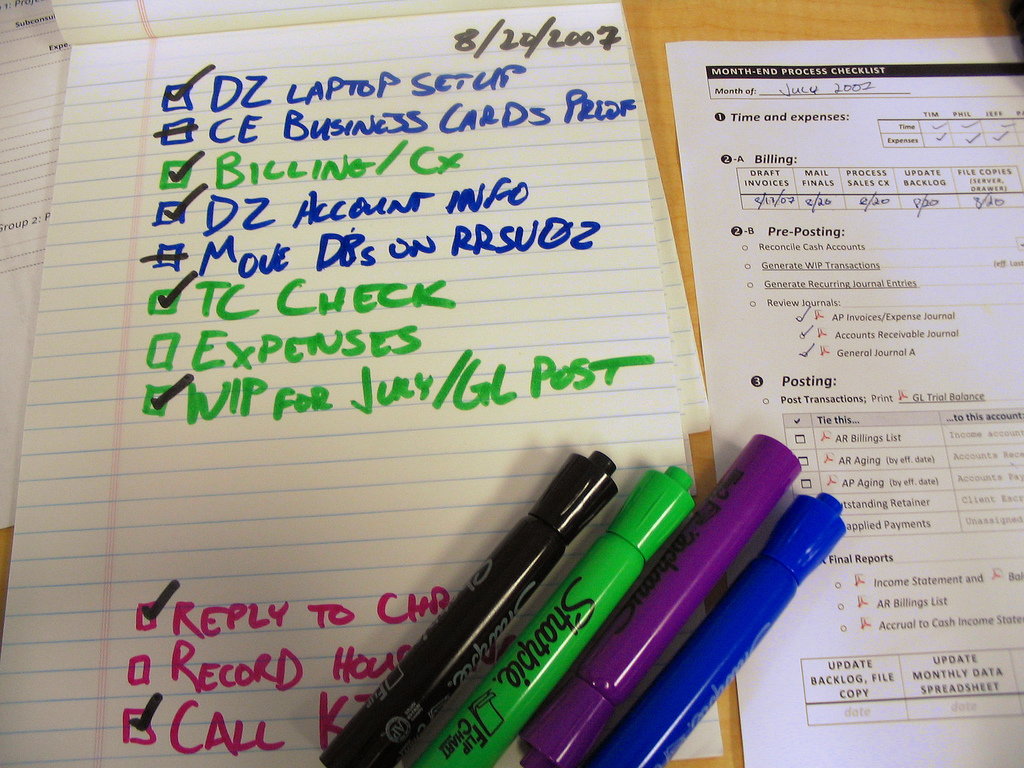 8/20/2007
DZ LAPTOP SETUP
CE BUSINESS CARDS PROOF
BILLING/CX
DZ ACCOUNT INFO
MOVE DB's ON RRSUDZ
TC CHECK
EXPENSES
WIP FOR JULY/GL POST
REPLY TO CHA
RECORD HOU
CALL K
Sharpie
FLIP CHART
Sharpie.
FLIP CHART
Subconsu
Expe
Group 2: P
MONTH-END PROCESS CHECKLIST
Month of: July 2007
1 Time and expenses:
TIM PHIL JEFF
Time
Expenses
2-A Billing:
DRAFT INVOICES MAIL FINALS PROCESS SALES CX UPDATE BACKLOG FILE COPIES (SERVER, DRAWER)
8/17/07 8/20 8/20 8/20 8/20
2-B Pre-Posting:
Reconcile Cash Accounts
Generate WIP Transactions (eff. Last
Generate Recurring Journal Entries
Review Journals:
AP Invoices/Expense Journal
Accounts Receivable Journal
General Journal A
3 Posting:
Post Transactions; Print GL Trial Balance
Tie this... ...to this account:
AR Billings List Income account
AR Aging (by eff. date) Accounts Rece
AP Aging (by eff. date) Accounts Pay
tstanding Retainer Client Escr
applied Payments Unassigned
Final Reports
Income Statement and Bal
AR Billings List
Accrual to Cash Income State
UPDATE BACKLOG, FILE COPY UPDATE MONTHLY DATA SPREADSHEET
date date